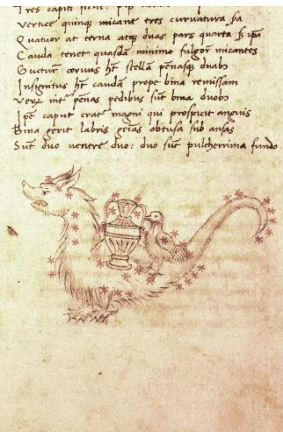 Tres capit
Vertice quinq micant tres curvatura
Quatuor at terna atq duas pars quarta
Cauda tenet quasdā minimo fulgor micantes
Guttur corvus hēt stellā penāsq duabꝫ
Insignitus hēt caudā prope bina remissam
Verū int penas pedibus sūt bina duobꝫ
Ipē caput crat magni qui prospicit anguis
Bina gerit labris geīas obtusa sub ansas
Sūt duo ventre duo: duo sūt pulcherrima fundo